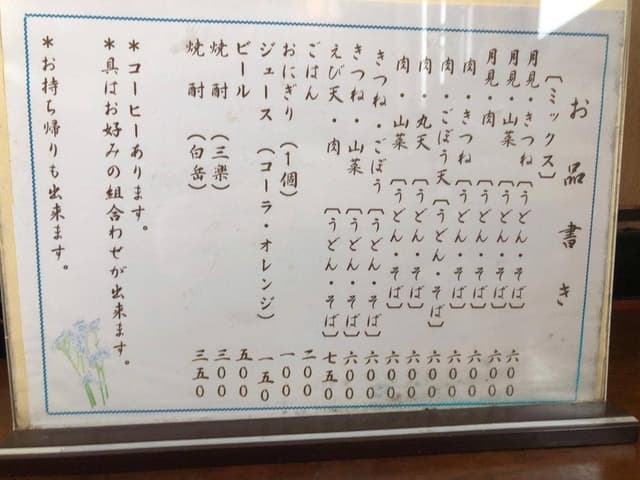 お品書き
〔ミックス〕
月見・きつね〔うどん・そば〕六００
月見・山菜〔うどん・そば〕六００
月見・肉〔うどん・そば〕六００
肉・きつね〔うどん・そば〕六００
肉・ごぼう天〔うどん・そば〕六００
肉・丸天〔うどん・そば〕六００
肉・山菜〔うどん・そば〕六００
きつね・ごぼう〔うどん・そば〕六００
きつね・山菜〔うどん・そば〕六００
えび天・肉〔うどん・そば〕七五０
ごはん 二００
おにぎり（1個）一００
ジュース（コーラ・オレンジ）一五０
ビール 五００
焼酎（三楽）三００
焼酎（白岳）三五０
＊コーヒーあります。
＊具はお好みの組合わせが出来ます。
＊お持ち帰りも出来ます。